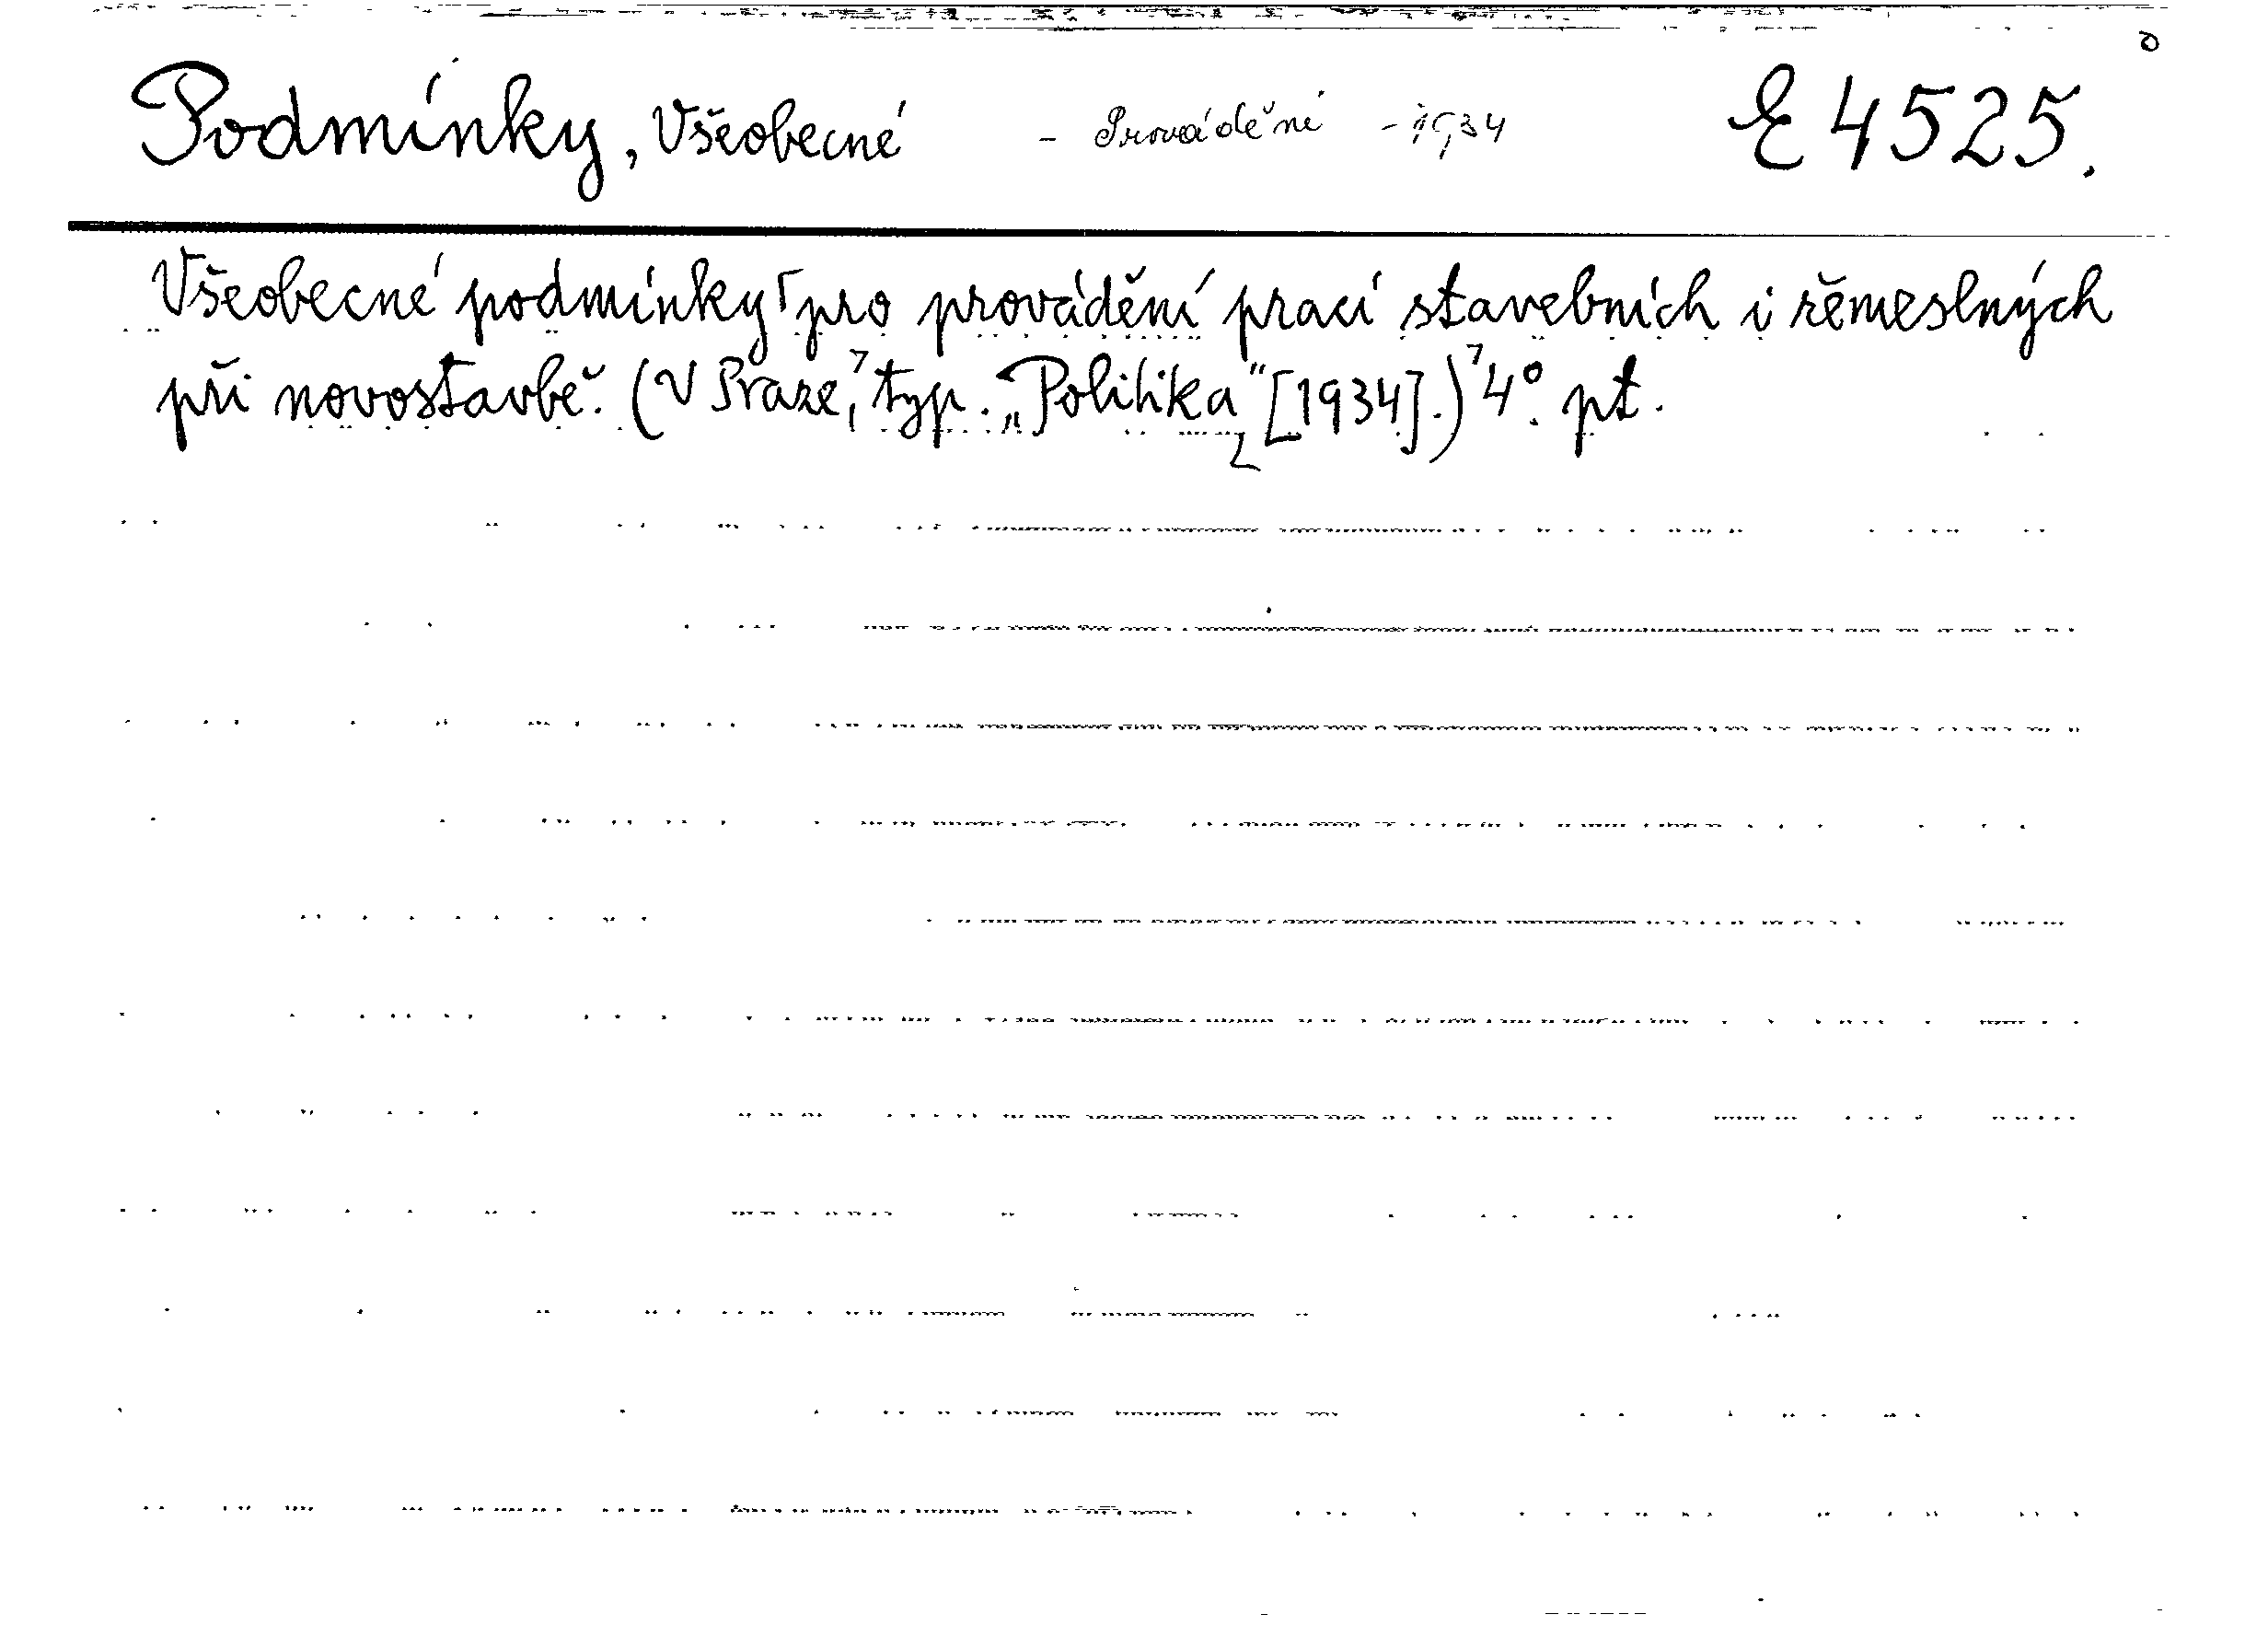 Podmínky, Všeobecné - Provádění - 1934 E 4525.
Všeobecné podmínky pro provádění prací stavebních i řemeslných
při novostavbě. (V Praze, typ. „Politika" [1934].) 4°. pt.